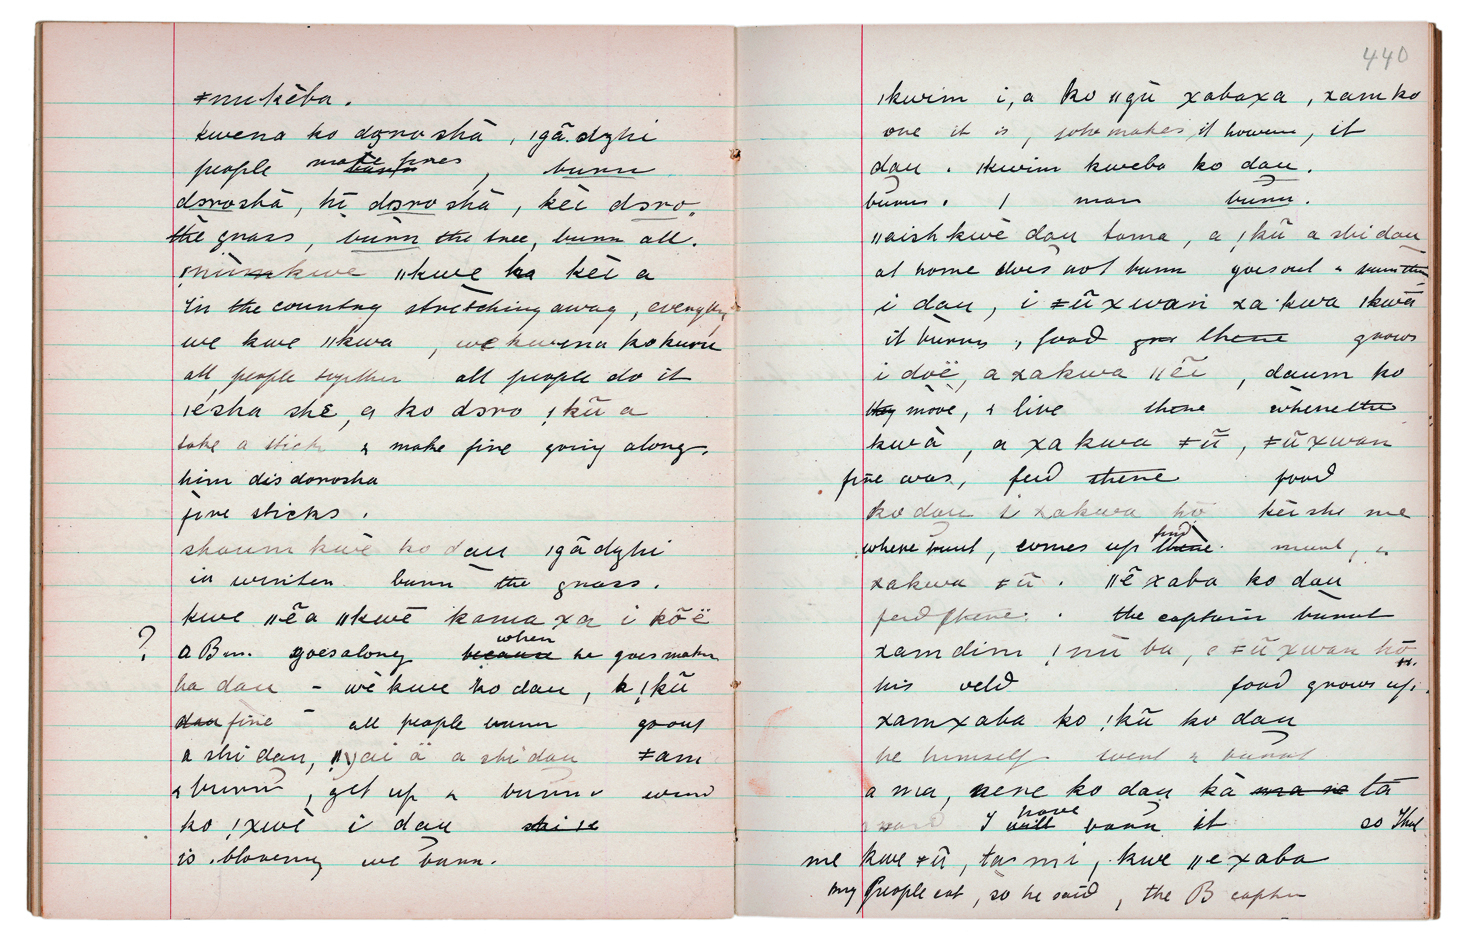 ǂnukēba.
kwena ko doro shā, ǀgā.dzhi
people make fires burn, burn
doro shā, hī doro shā, kēi doro.
the grass, burn the tree, burn all.
ǃnūm kwe ǁkwe ka kēi a
In the country stretching away, everybody
we kwe ǁkwa, we kwena ko kuru
all, people together all people do it
ǀēsha shē, a ko doro ǃkū a
take a stick & make fire going along.
him dis dorosha
fire sticks.
shaum kwē ko dau ǀgā dzhi
in winter burn the grass.
kwe ǁēa ǁkwē kama xa i kōë
? a Bm. goes along because when he goes makes
ha dau – wē kwe ko dau, k ǃkū
dau fire – all people burn go out
a shi dau, ǁgai ä a shi dau ǂam
& burn, get up & burn wind
ko ǃxwē i dau shi se
is blowing we burn.
440
ǀkwim i, a ko ǁgū xabaxa, xam ko
one it is, who makes it however, it
dau. ǀkwim kweba ko dau.
burns. 1 man burn.
ǁaish kwē dau tama, a ǃkū a shi dau
at home does not burn goes out & burn there
i dau, i ǂū xwan xa kwa ǀkwā
it burns, food grs there grows
i doë, a xakwa ǁēi, daum ko
they move, & live there where the
kwā, a xa kwa ǂū, ǂū xwan
fire was, feed there food
ko dau i xakwa hō kēishe me
where burnt, comes up there find must, &
xakwa ǂū. ǁē xaba ko dau
feed there. the captain burnt
xam dim ǃnū ba, e ǂū xwan hō
his veld food grows up.
xamxaba ko ǃkū ko dau
he himself went & burnt
a ma, nere ko dau kā ma n tā
I will have burn it so that
me kwe ǂū, ta mi, kwe ǁe xaba
my people eat, so he said, the B captn